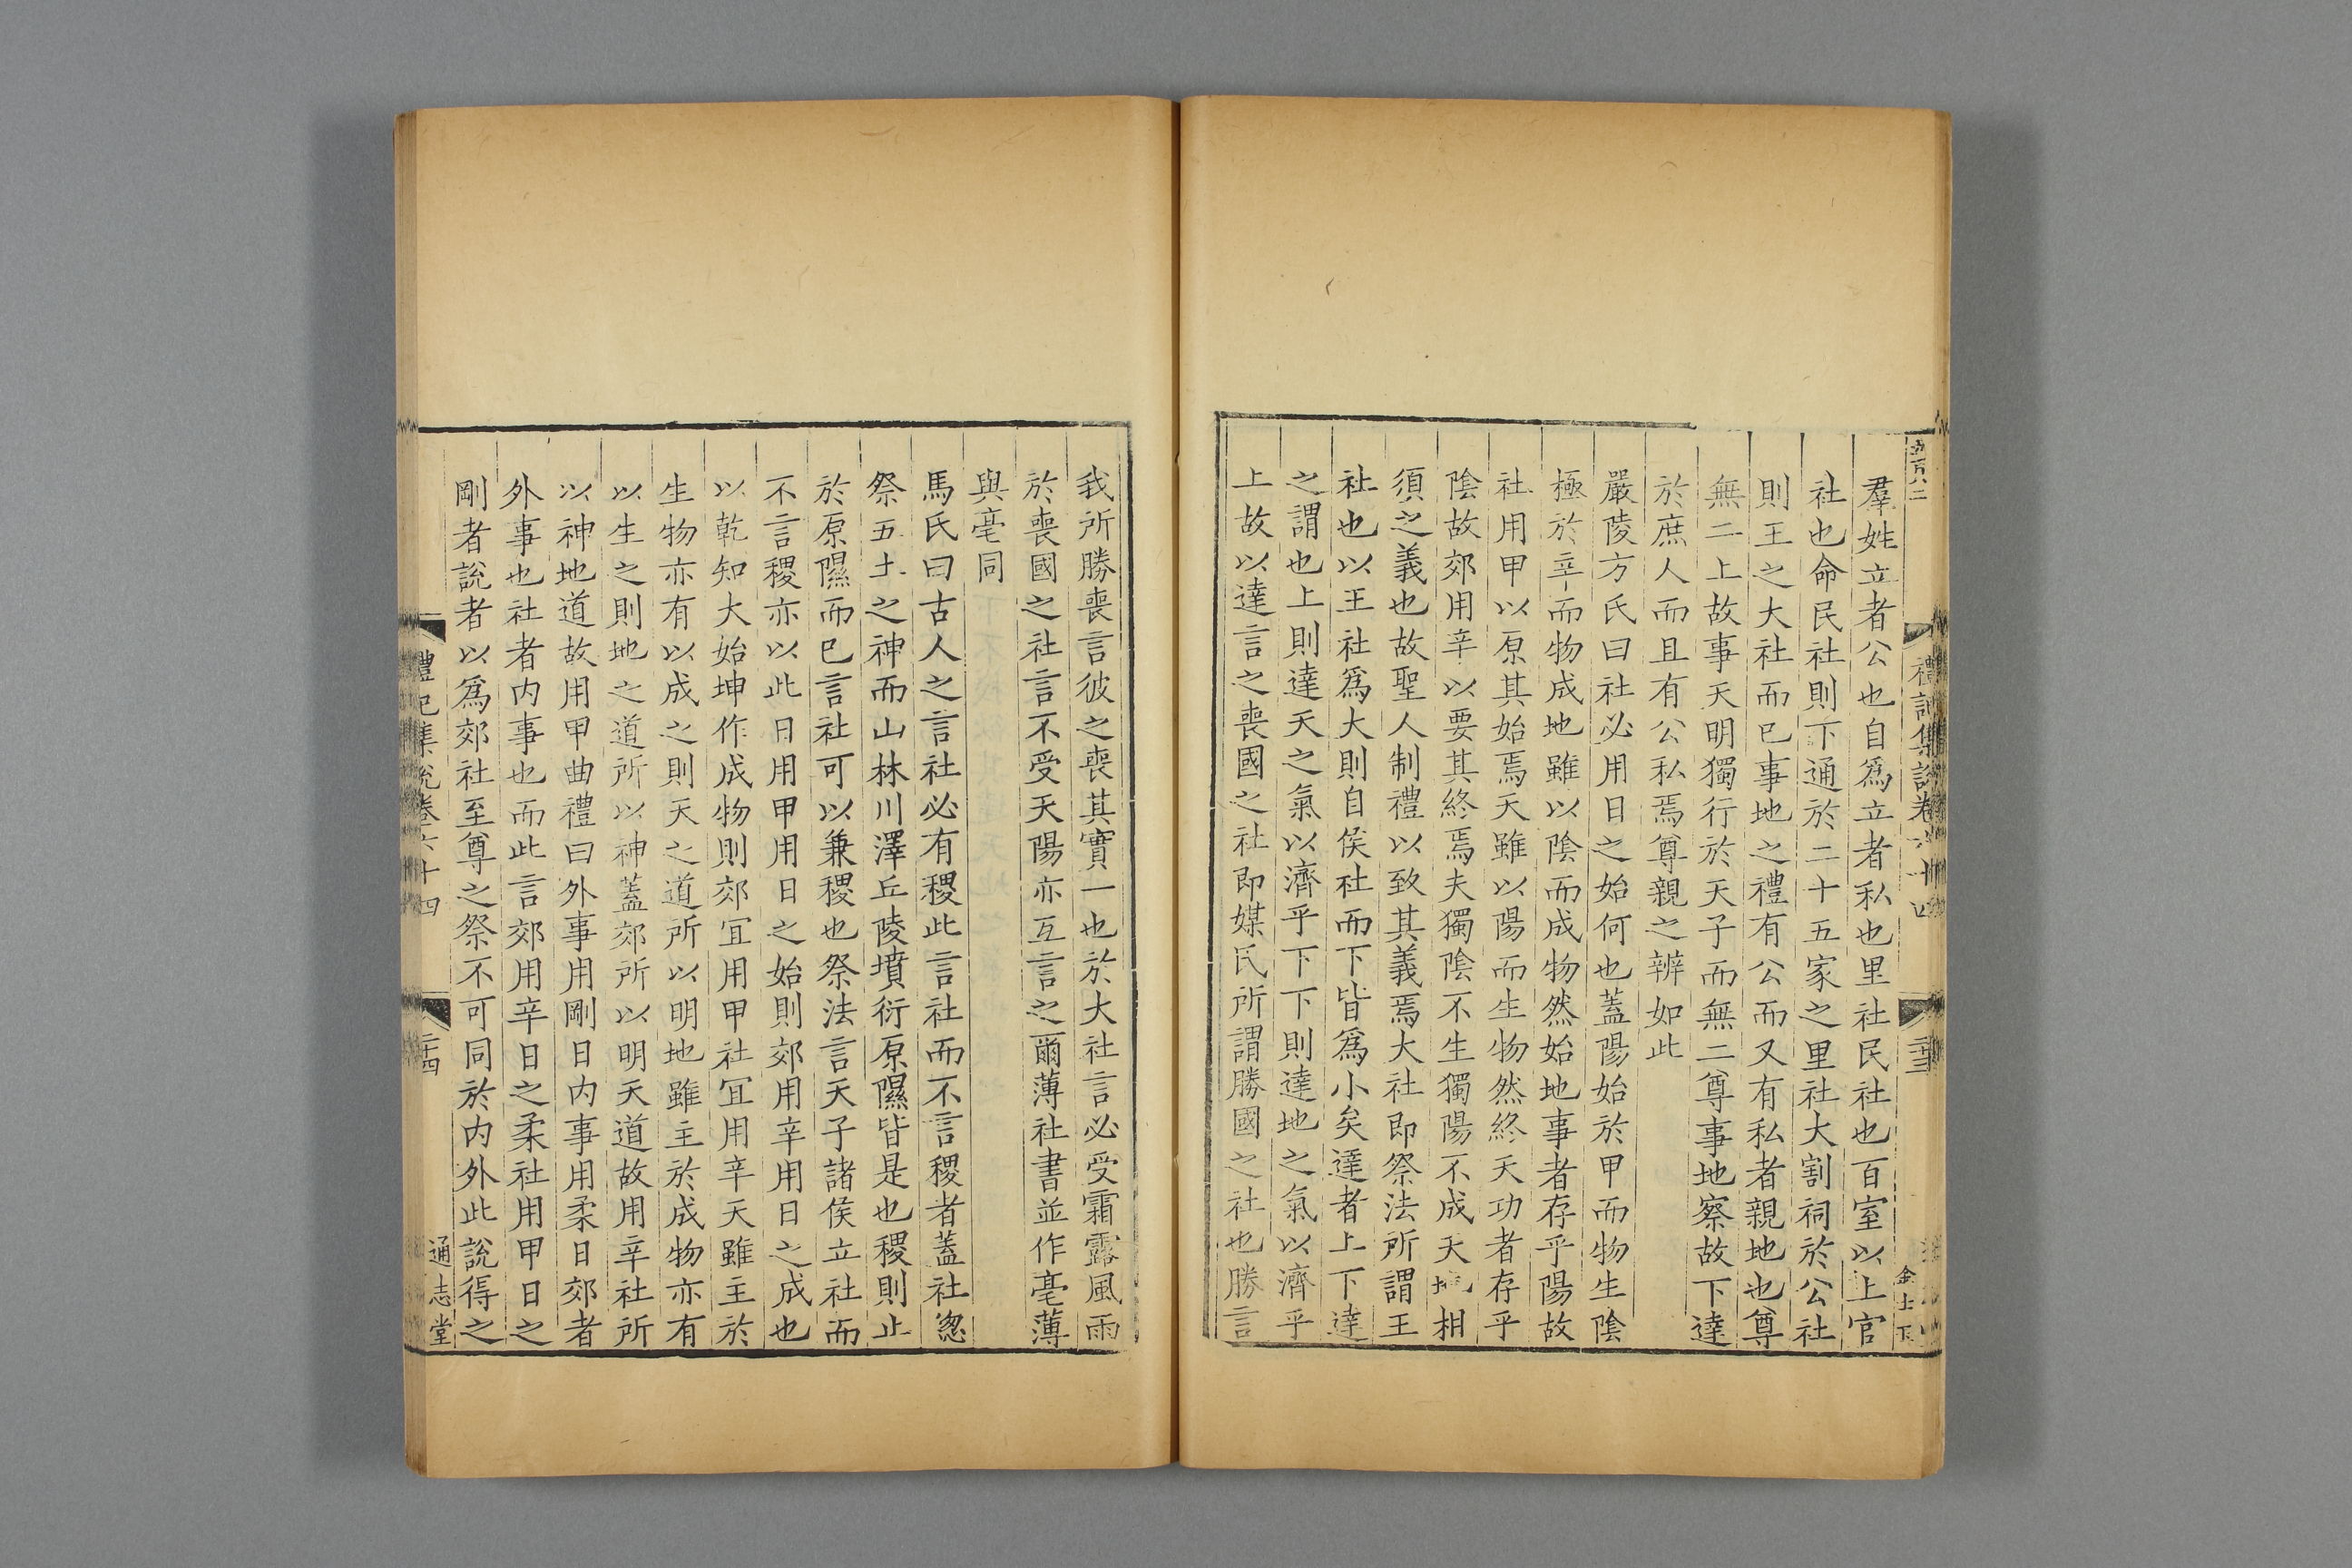 五百八二
禮記集說卷六十四
二十三
金士下
羣姓立者公也自爲立者私也里社民社也百室以上官
社也命民社則下通於二十五家之里社大割祠於公社
則王之大社而已事地之禮有公而又有私者親地也尊
無二上故事天明獨行於天子而無二尊事地察故下達
於庶人而且有公私焉尊親之辨如此
嚴陵方氏曰社必用日之始何也蓋陽始於甲而物生陰
極於辛而物成地雖以陰而成物然始地事者存乎陽故
社用甲以原其始焉天雖以陽而生物然終天功者存乎
陰故郊用辛以要其終焉夫獨陰不生獨陽不成天地相
須之義也故聖人制禮以致其義焉大社即祭法所謂王
社也以王社爲大則自侯社而下皆爲小矣達者上下達
之謂也上則達天之氣以濟乎下下則達地之氣以濟乎
上故以達言之喪國之社即媒氏所謂勝國之社也勝言
我所勝喪言彼之喪其實一也於大社言必受霜露風雨
於喪國之社言不受天陽亦互言之爾薄社書並作亳薄
與亳同
馬氏曰古人之言社必有稷此言社而不言稷者蓋社緫
祭五土之神而山林川澤丘陵墳衍原隰皆是也稷則止
於原隰而已言社可以兼稷也祭法言天子諸侯立社而
不言稷亦以此日用甲用日之始則郊用辛用日之成也
以乾知大始坤作成物則郊宜用甲社宜用辛天雖主於
生物亦有以成之則天之道所以明地雖主於成物亦有
以生之則地之道所以神蓋郊所以明天道故用辛社所
以神地道故用甲曲禮曰外事用剛日内事用柔日郊者
外事也社者内事也而此言郊用辛日之柔社用甲日之
剛者說者以爲郊社至尊之祭不可同於内外此說得之
禮記集說卷六十四
二十四
通志堂